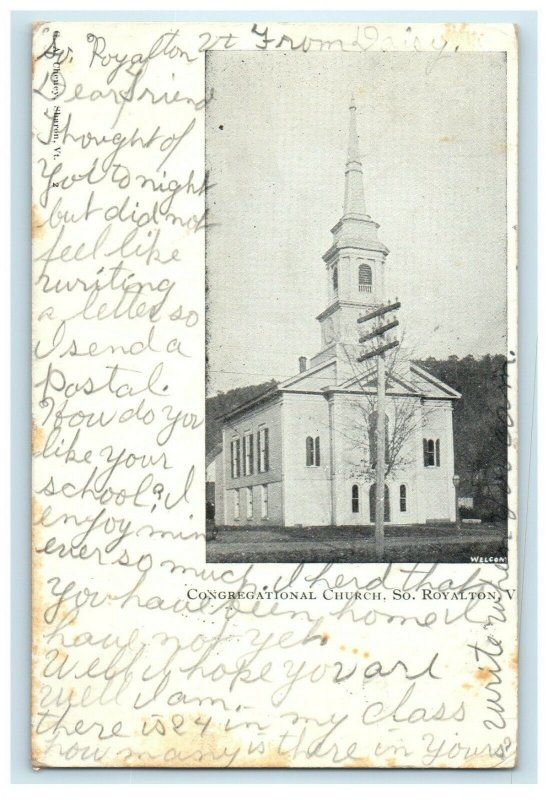 So. Royalton Vt From Daisy.
Dear friend
Thought of
You to night
but did not
feel like
writing
a letter so
I send a
Postal.
How do you
like your
school? I
enjoy mine
ever so much. I herd that
You have been home I
have not yet.
Well I hope you arl
well I am.
there is 24 in my class
how many is there in Yours?
write
Cheney, Sharon, Vt. 2
WELCOM
CONGREGATIONAL CHURCH, SO. ROYALTON, V